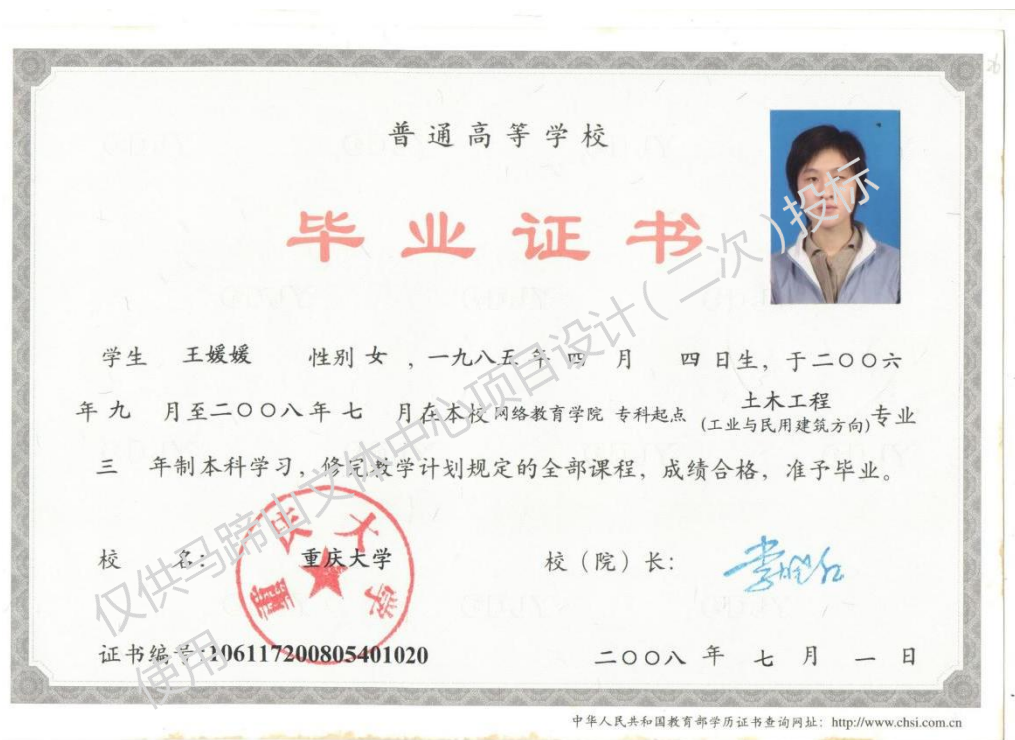 普通高等学校
毕业证书
学生 王媛媛 性别 女 ，一九八五年 四 月 四 日生，于二〇〇六
年 九 月至二〇〇八年 七 月在本校 网络教育学院 专科起点 土木工程 (工业与民用建筑方向) 专业
三 年制本科学习，修完教学计划规定的全部课程，成绩合格，准予毕业。
校 名： 重庆大学 校（院）长：
重庆大学
证书编号：106117200805401020 二〇〇八 年 七 月 一 日
中华人民共和国教育部学历证书查询网址：http://www.chsi.com.cn
仅供马蹄山文体中心项目设计（二次）投标
使用